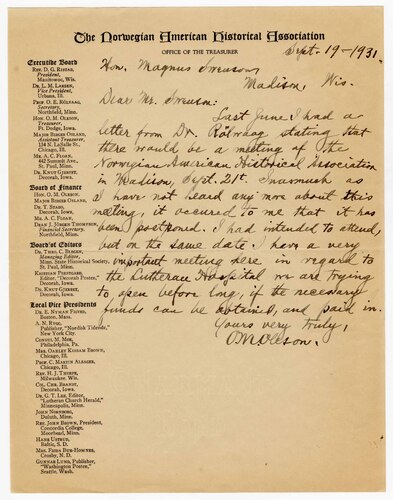 The Norwegian American Historical Association
OFFICE OF THE TREASURER
Sept. 19-1931.
Hon. Magnus Swenson,
Madison, Wis.
Dear Mr. Swenson:
Last June I had a
letter from Dr. Rolvaag stating that
there would be a meeting of the
Norwegian American Historical Association
in Madison, Sept. 21st. Inasmuch as
I have not heard any more about this
meeting, it occured to me that it has
been postponed. I had intended to attend,
but on the same date I have a very
important meeting here in regard to
the Lutheran Hospital we are trying
to open before long, if the necessary
funds can be obtained, and paid in.
Yours very truly,
O M Oleson.
Executive Board
Rev. D. G. Ristad,
President,
Manitowoc, Wis.
Dr. L. M. Larsen,
Vice President,
Urbana, Ill.
Prof. O. E. Rölvaag,
Secretary,
Northfield, Minn.
Hon. O. M. Oleson,
Treasurer,
Ft. Dodge, Iowa.
Major Birger Osland,
Assistant Treasurer,
134 N. LaSalle St.,
Chicago, Ill.
Mr. A. C. Floan,
442 Summit Ave.,
St. Paul, Minn.
Dr. Knut Gjerset,
Decorah, Iowa.
Board of Finance
Hon. O. M. Oleson,
Major Birger Osland,
Dr. T. Stabo,
Decorah, Iowa.
Mr. A. C. Floan,
Dean J. Jörgen Thompson,
Financial Secretary,
Northfield, Minn.
Board of Editors
Dr. Theo. C. Blegen,
Managing Editor,
Minn. State Historical Society,
St. Paul, Minn.
Kristian Prestgard,
Editor, "Decorah Posten",
Decorah, Iowa.
Dr. Knut Gjerset,
Decorah, Iowa.
Local Vice Presidents
Dr. E. Nyman Figved,
Boston, Mass.
A. N. Rygg,
Publisher, "Nordisk Tidende,"
New York City.
Consul M. Moe,
Philadelphia, Pa.
Mrs. Oakley Kissam Brown,
Chicago, Ill.
Prof. C. Martin Alsager,
Chicago, Ill.
Rev. H. J. Thorpe,
Milwaukee, Wis.
Col. Chr. Brandt,
Decorah, Iowa.
Dr. G. T. Lee, Editor,
"Lutheran Church Herald,"
Minneapolis, Minn.
John Nornborg,
Duluth, Minn.
Rev. John Brown, President,
Concordia College,
Moorhead, Minn.
Hans Ustrud,
Baltic, S. D.
Mrs. Frida Bue-Homnes,
Crosby, N. D.
Gunnar Lund, Publisher,
"Washington Posten,"
Seattle, Wash.